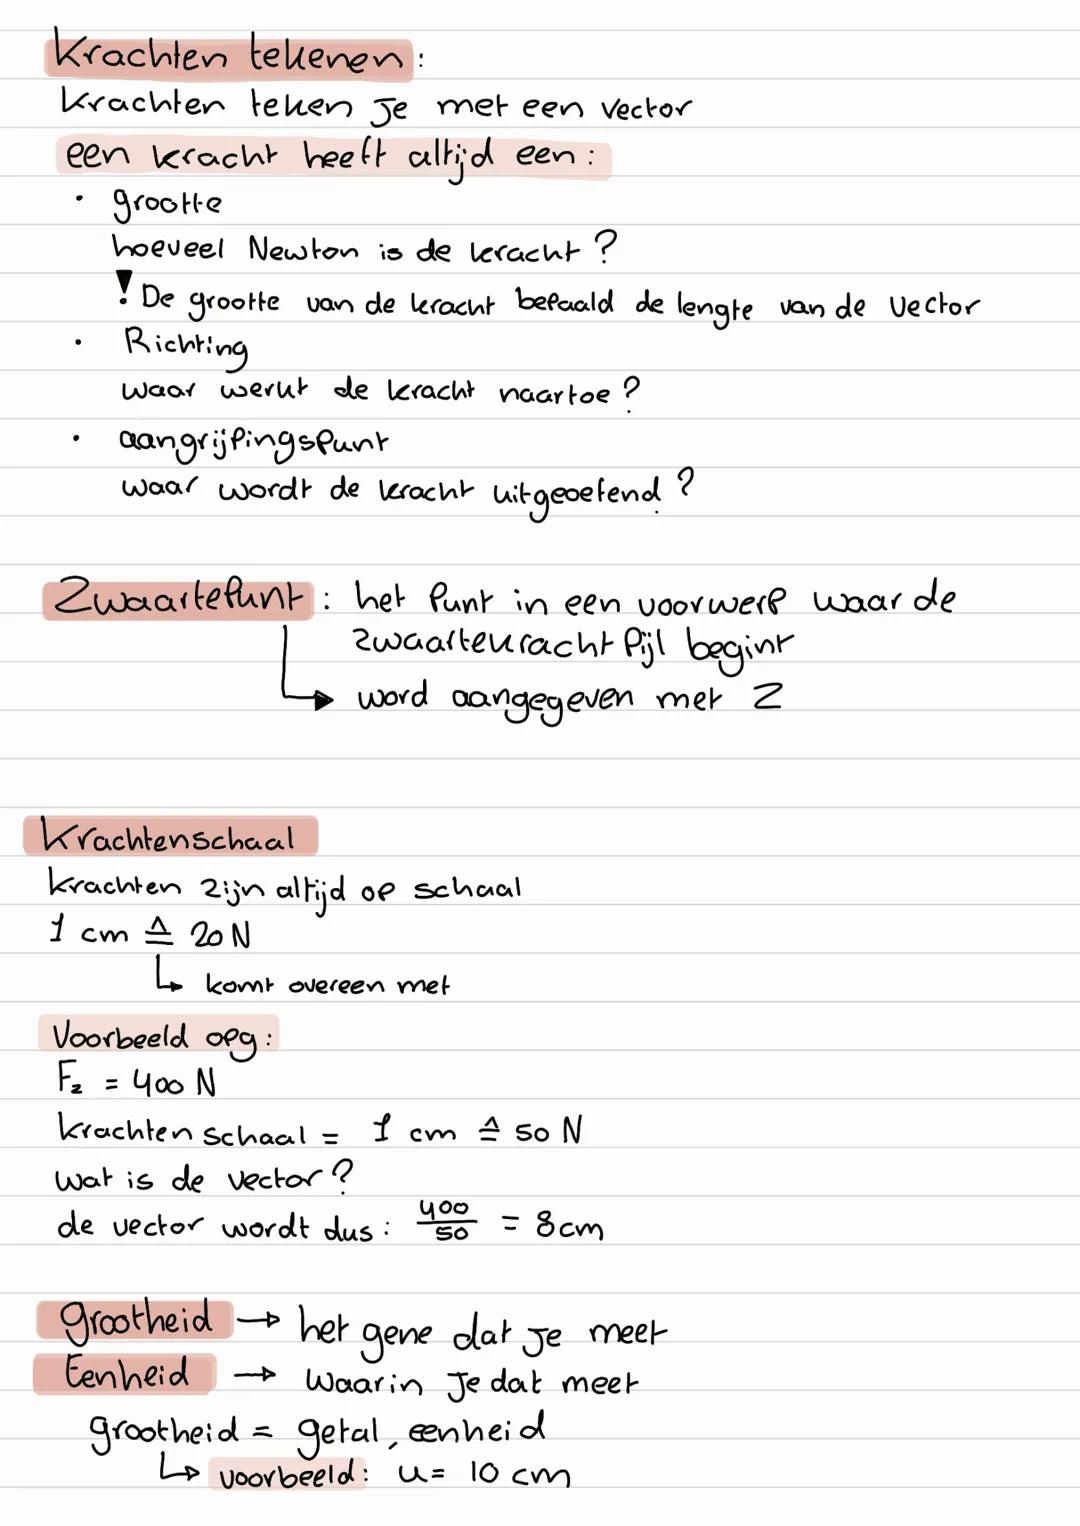 Krachten tekenen:
Krachten teken je met een vector
een kracht heeft altijd een:
• grootte
hoeveel Newton is de kracht?
! De grootte van de kracht bepaald de lengte van de vector
• Richting
waar werkt de kracht naartoe?
• aangrijpingspunt
waar wordt de kracht uitgeoefend?
Zwaartepunt: het punt in een voorwerp waar de
zwaartekracht pijl begint
↳ word aangegeven met Z
Krachtenschaal
krachten zijn altijd op schaal
1 cm ≙ 20 N
↳ komt overeen met
Voorbeeld opg:
Fz = 400 N
krachtenschaal = 1 cm ≙ 50 N
wat is de vector?
de vector wordt dus: 400/50 = 8cm
grootheid → het gene dat je meet
Eenheid → waarin je dat meet
grootheid = getal, eenheid
↳ voorbeeld: u = 10 cm